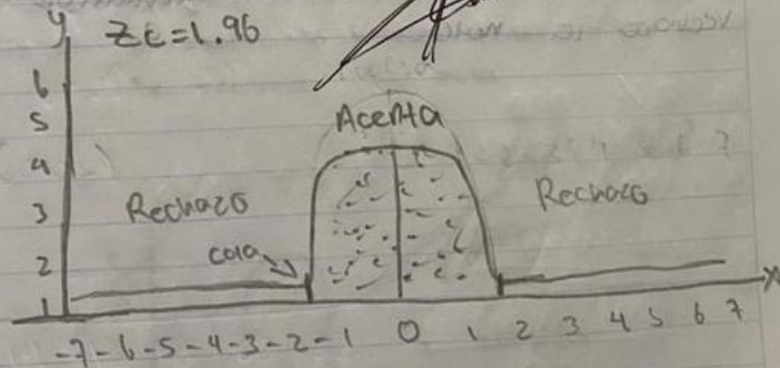 y Zc=1.96
6
5 Acepta
4
3 Rechazo Rechazo
2 cola
1 x
-7-6-5-4-3-2-1 0 1 2 3 4 5 6 7